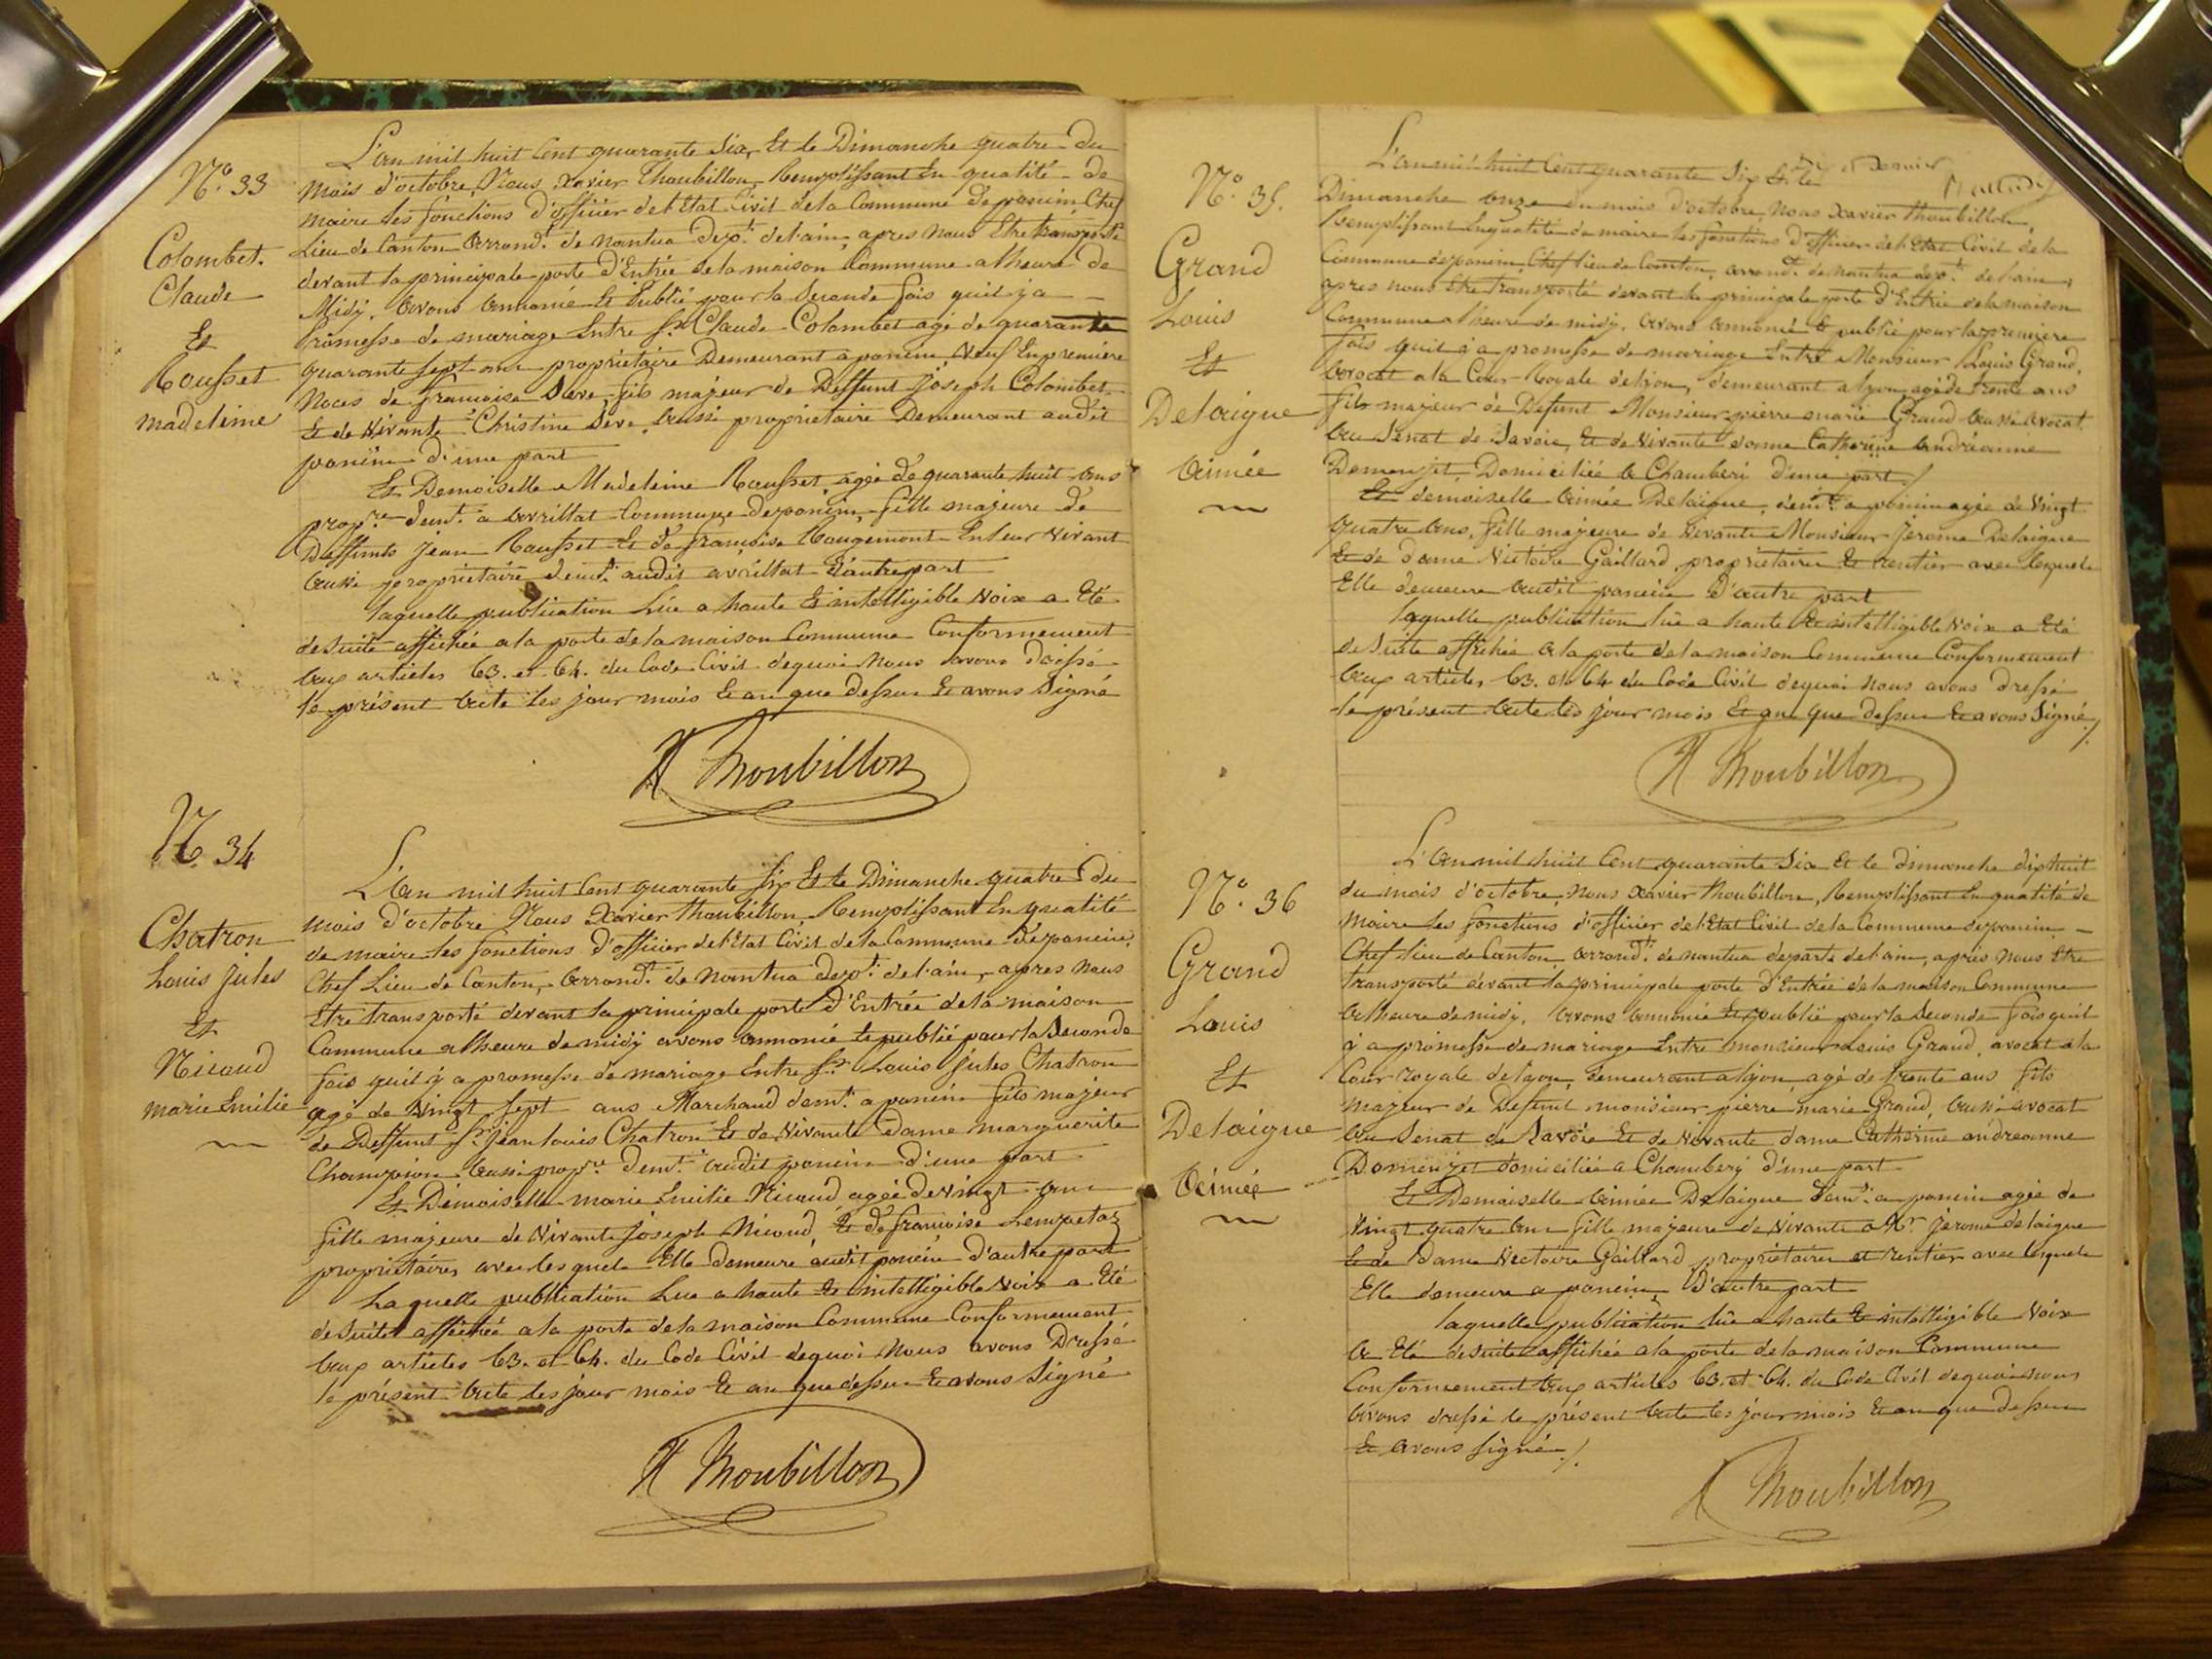 N.° 33
Colombet.
Claude
Et
Rousset
madeleine
L'an mil huit Cent quarante Six, Et le Dimanche quatre du
mois d'octobre, Nous Xavier Thoubillon, Remplissant En qualité de
maire les fonctions d'officier del'Etat Civil dela Commune de poncin Chef
Lieu de Canton Arrond.t de nantua Dep.t del'ain, apres nous Etre transporté
devant la principale porte d'Entrée dela maison Commune a lheure de
Midy. Avons Annoncé Et Publié pour la Seconde fois quil y a
Promesse de mariage Entre S.r Claude Colombet agé de quarante
quarante Sept ans propriétaire Demeurant a poncin Veuf En premiere
Noces de francoise Seve, fils majeur de Deffunt joseph Colombet
Et de Vivante Christine Seve, aussi propriétaire Demeurant audit
poncin d'une part
Et Demoiselle Madeleine Rousset, agée de quarante huit ans
prop.re dem.t a Avrillat Commune deponcin, fille majeure de
Deffunts Jean Rousset Et de françoise Rougemont En leur Vivant
Aussi propriétaire dem.t audit avrillat d'autre part
laquelle publication Lue a haute Et intelligible Voix a Eté
desuite affichée ala porte dela maison Commune Conformement
Aux articles 63. et 64. du Code Civil dequoi nous avons Dressé
le présent Acte les jour mois Et an que dessus Et avons Signé
X Thoubillon
N.° 34
Chatron
Louis jules
Et
Nicoud
marie Emilie
L'An mil huit Cent quarante Six Et le Dimanche quatre du
mois d'octobre Nous Xavier Thoubillon, Remplissant En qualité
de maire les fonctions d'officier del'Etat Civil dela Commune deponcin,
Chef Lieu de Canton, Arrond.t de Nantua dep.t del'ain, apres nous
Etre transporté devant la principale porte d'Entrée dela maison
Commune a lheure de midy avons Annoncé Et publié pour la Seconde
fois quil y a promesse de mariage Entre S.r Louis Jules Chatron
agé de Vingt Sept ans Marchand dem.t a poncin fils majeur
de Deffunt S.r Jean louis Chatron Et de Vivante Dame marguerite
Champion Aussi prop.re dem.t Audit poncin d'une part
Et Démoiselle marie Emilie Nicoud agée de Vingt ans
fille majeure de Vivants Joseph Nicoud, Et de francoise Lempetaz
propriétaires avec lesquels Elle Demeure audit poncin d'autre part
Laquelle publication Lue a haute Et intelligible Voix a Eté
desuite affichée ala porte dela maison Commune Conformement
Aux articles 63. et 64. du Code Civil dequoi Nous avons Dressé
le présent Acte les jour mois Et an que dessus Et avons Signé
X Thoubillon
N.° 35.
Grand
Louis
Et
Delaigue
Aimée
L'an mil huit Cent quarante Six Et le
Dimanche onze du mois d'octobre, Nous Xavier thoubillon
Remplissant En qualité de maire les fonctions d'officier del'Etat Civil dela
Commune deponcin Chef lieu de Canton, arrond.t de nantua dep.t de lain,
apres nous Etre transporté devant la principale porte d'Entrée dela maison
Commune a lheure de midy. Avons Annoncé Et publié pour la premiere
fois quil y a promesse de mariage Entre Monsieur Louis Grand,
Avocat a la Cour Royale delyon, demeurant a lyon, agé de trente ans
fils majeur de Defunt Monsieur pierre marie Grand Aussi Avocat
Au Senat de Savoie, Et de Vivante dame Catherine Andréanne
Domenjet Domiciliée a Chamberi d'une part /
Et demoiselle Aimée Delaigue, dem.t a poncin agée de Vingt
quatre Ans, fille majeure de Vivants Monsieur Jerome Delaigue
Et de Dame Victoire Gaillard, propriétaires Et rentier avec lesquels
Elle demeure Audit poncin D'autre part
laquelle publication lûe a haute Et intelligible Voix a Eté
desuite affichée a la porte dela maison Commune Conformement
Aux articles, 63. et 64 du Code Civil dequoi nous avons dressé
le présent Acte les jour mois Et an que dessus Et avons Signé /.
X Thoubillon
N.° 36
Grand
Louis
Et
Delaigue
Aimée
L'An mil huit Cent quarante Six Et le dimanche dixhuit
du mois d'octobre, Nous Xavier thoubillon, Remplissant En qualité de
Maire les fonctions d'officier del'Etat Civil dela Commune deponcin
Chef lieu de Canton, Arrond.t de nantua départ.t del'ain, après nous Etre
transporté devant la principale porte d'Entrée dela maison Commune
A lheure de midy. Avons Annoncé Et publié pour la Seconde fois quil
y a promesse de mariage Entre monsieur Louis Grand, avocat ala
Cour royale delyon, demeurant a lyon, agé de trente ans fils
majeur de Defunt monsieur pierre marie Grand, Aussi avocat
Au Senat de Savoie Et de Vivante dame Catherine andreanne
Domenjet domiciliée a Chambery d'une part
Et Demoiselle Aimée Delaigue dem.t a poncin agée de
Vingt quatre Ans fille majeure de Vivants M.r Jerome delaigue
Et de Dame Victoire Gaillard, propriétaires et rentier avec lesquels
Elle demeure a poncin, D'autre part
laquelle publication lûe a haute Et intelligible Voix
A Eté desuite affichée ala porte dela maison Commune
Conformement Aux articles 63. et 64. du Code Civil dequoi nous
Avons dressé le présent Acte les jour mois Et an que dessus
Et avons Signé /.
X Thoubillon